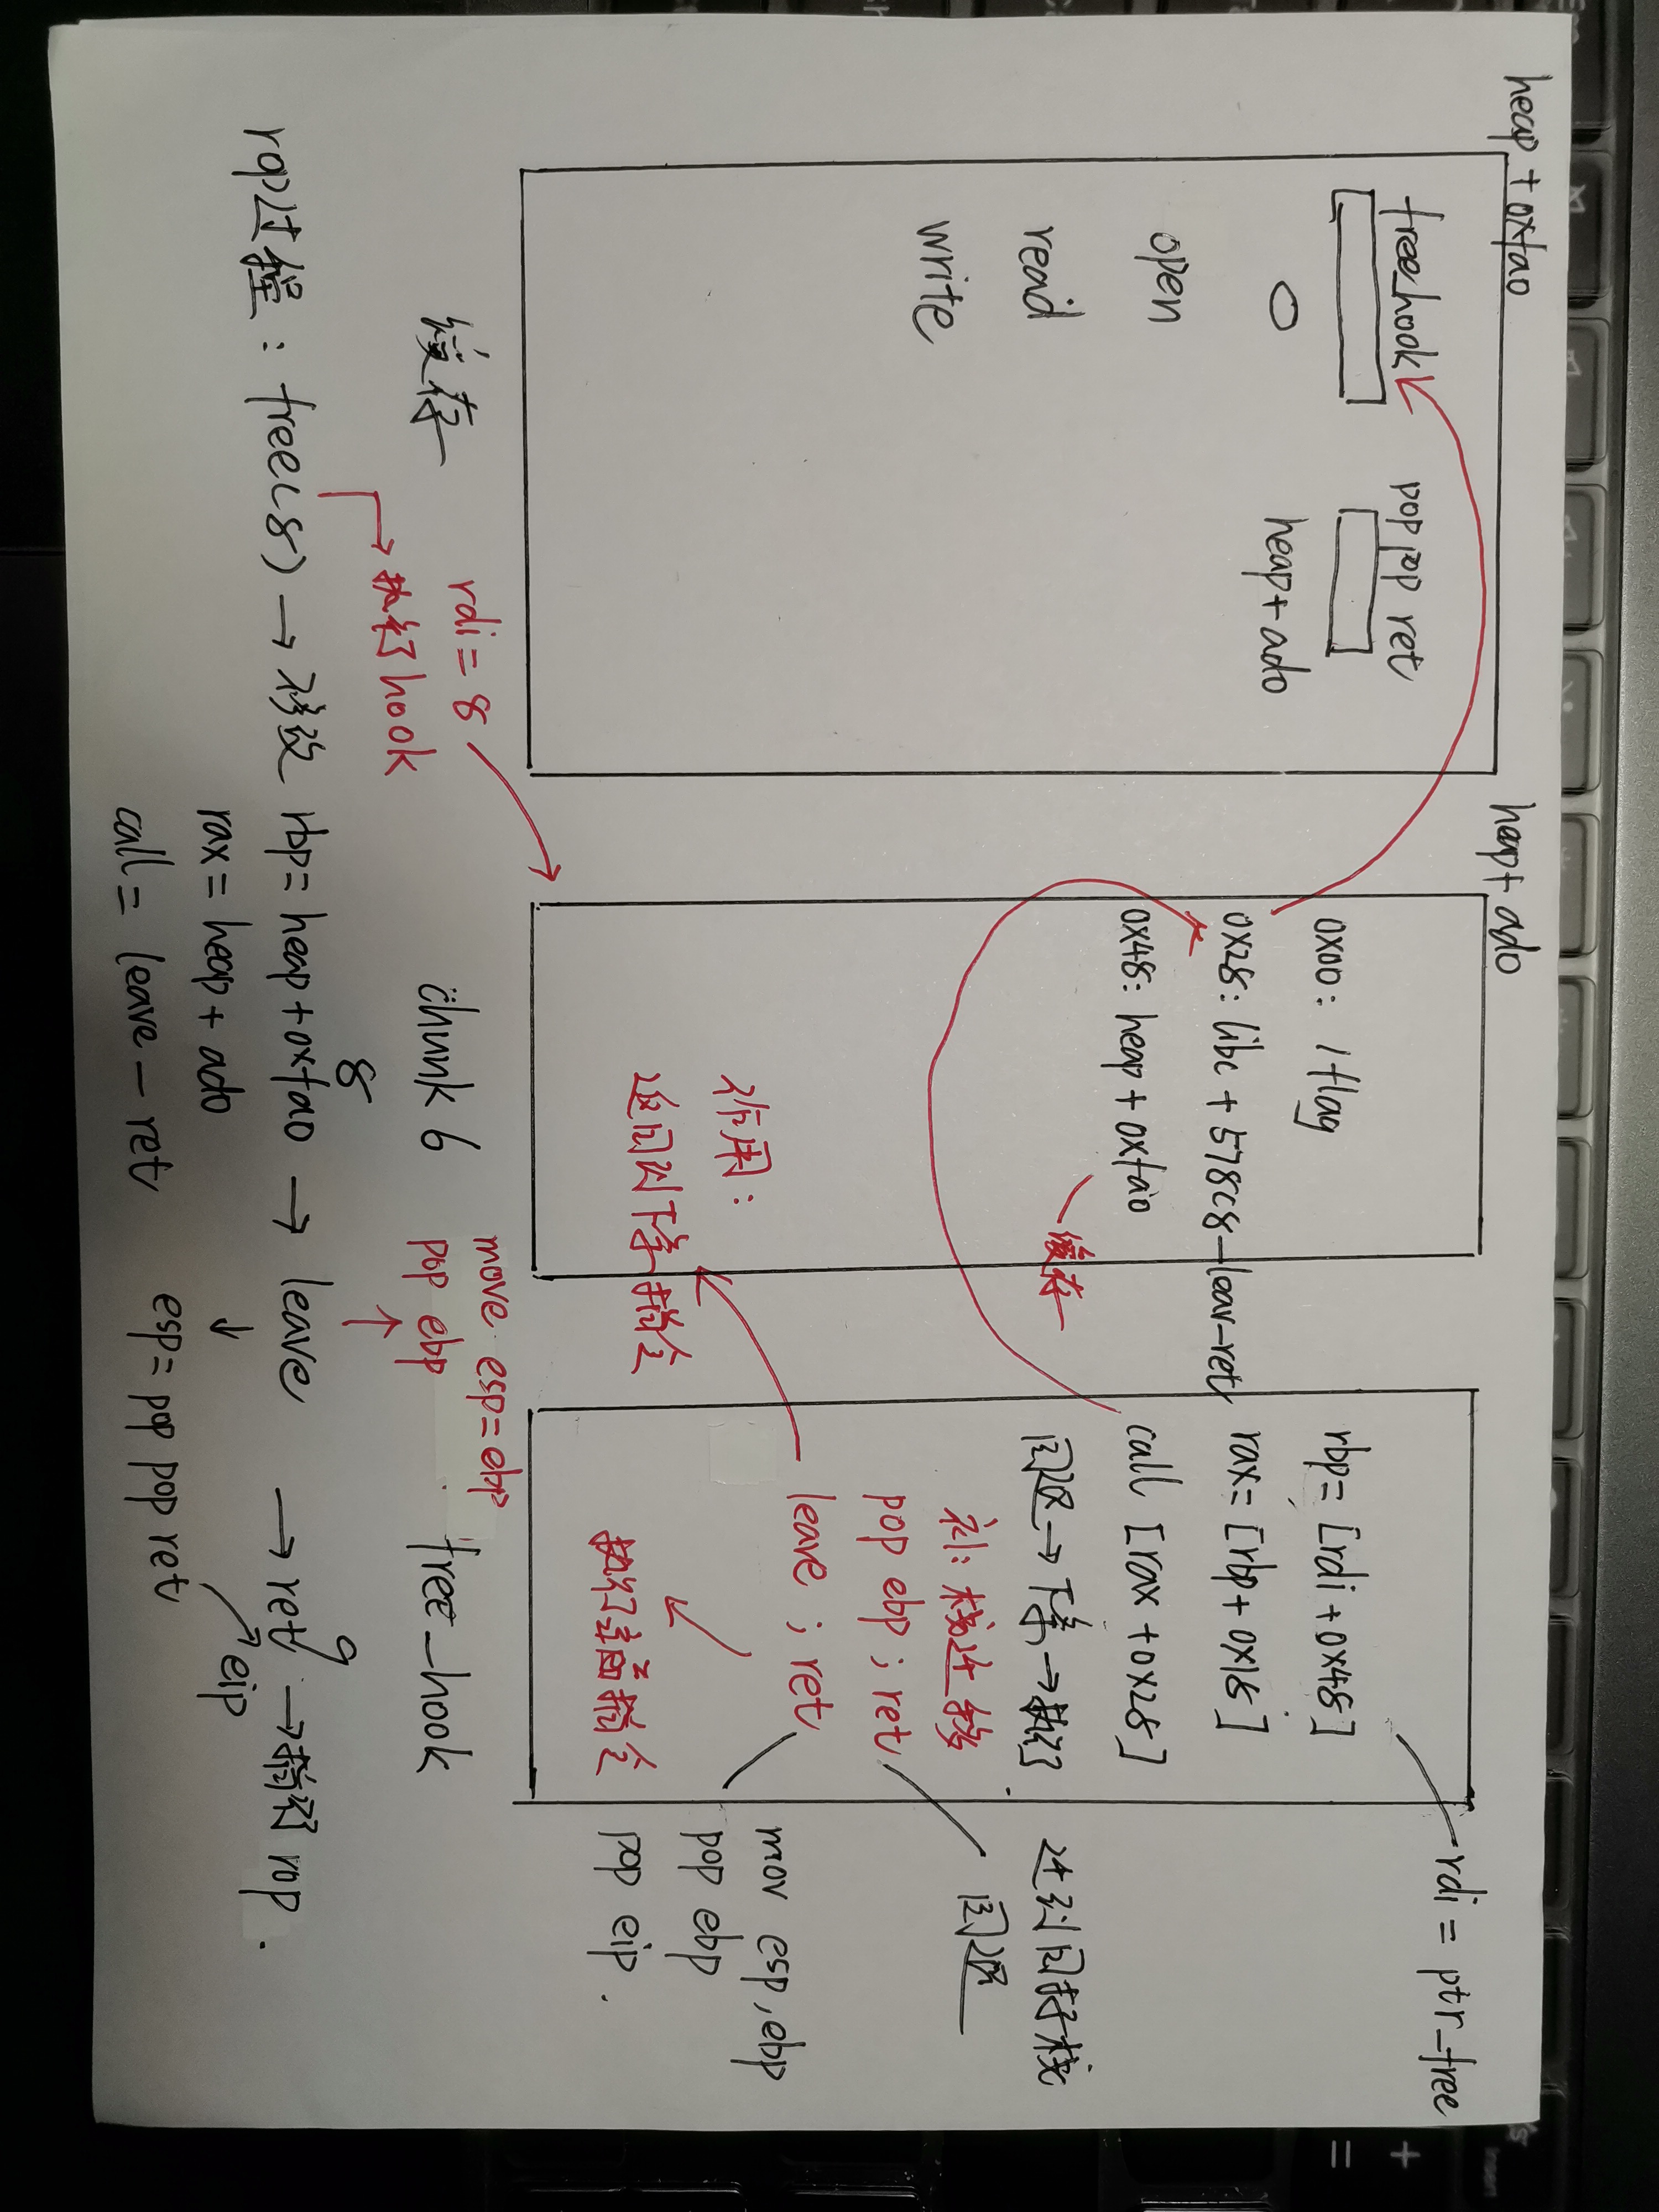 heap + 0xfa0
free_hook
pop pop ret
0
heap + ad0
open
read
write
缓存
heap + ad0
0x00: /flag
0x28: libc + 578c8—leav—ret
0x48: heap + 0xfa0
缓存
作用:
返回到下条指令
chunk 6
rbp = [rdi + 0x48]
rax = [rbp + 0x18]
call [rax + 0x28]
回退 → 下条 → 执行
补: 栈迁移
pop ebp ; ret
leave ; ret
执行上面指令
free_hook
rdi = ptr_free
回退
mov esp, ebp
pop ebp
pop eip .
rdi = 8
执行 hook
move esp = ebp
pop ebp
rop过程: free(8) → 修改 rbp = heap + 0xfa0 → leave → ret → 执行 rop .
8
9
rax = heap + ad0
call = leave — ret
esp = pop pop ret
eip